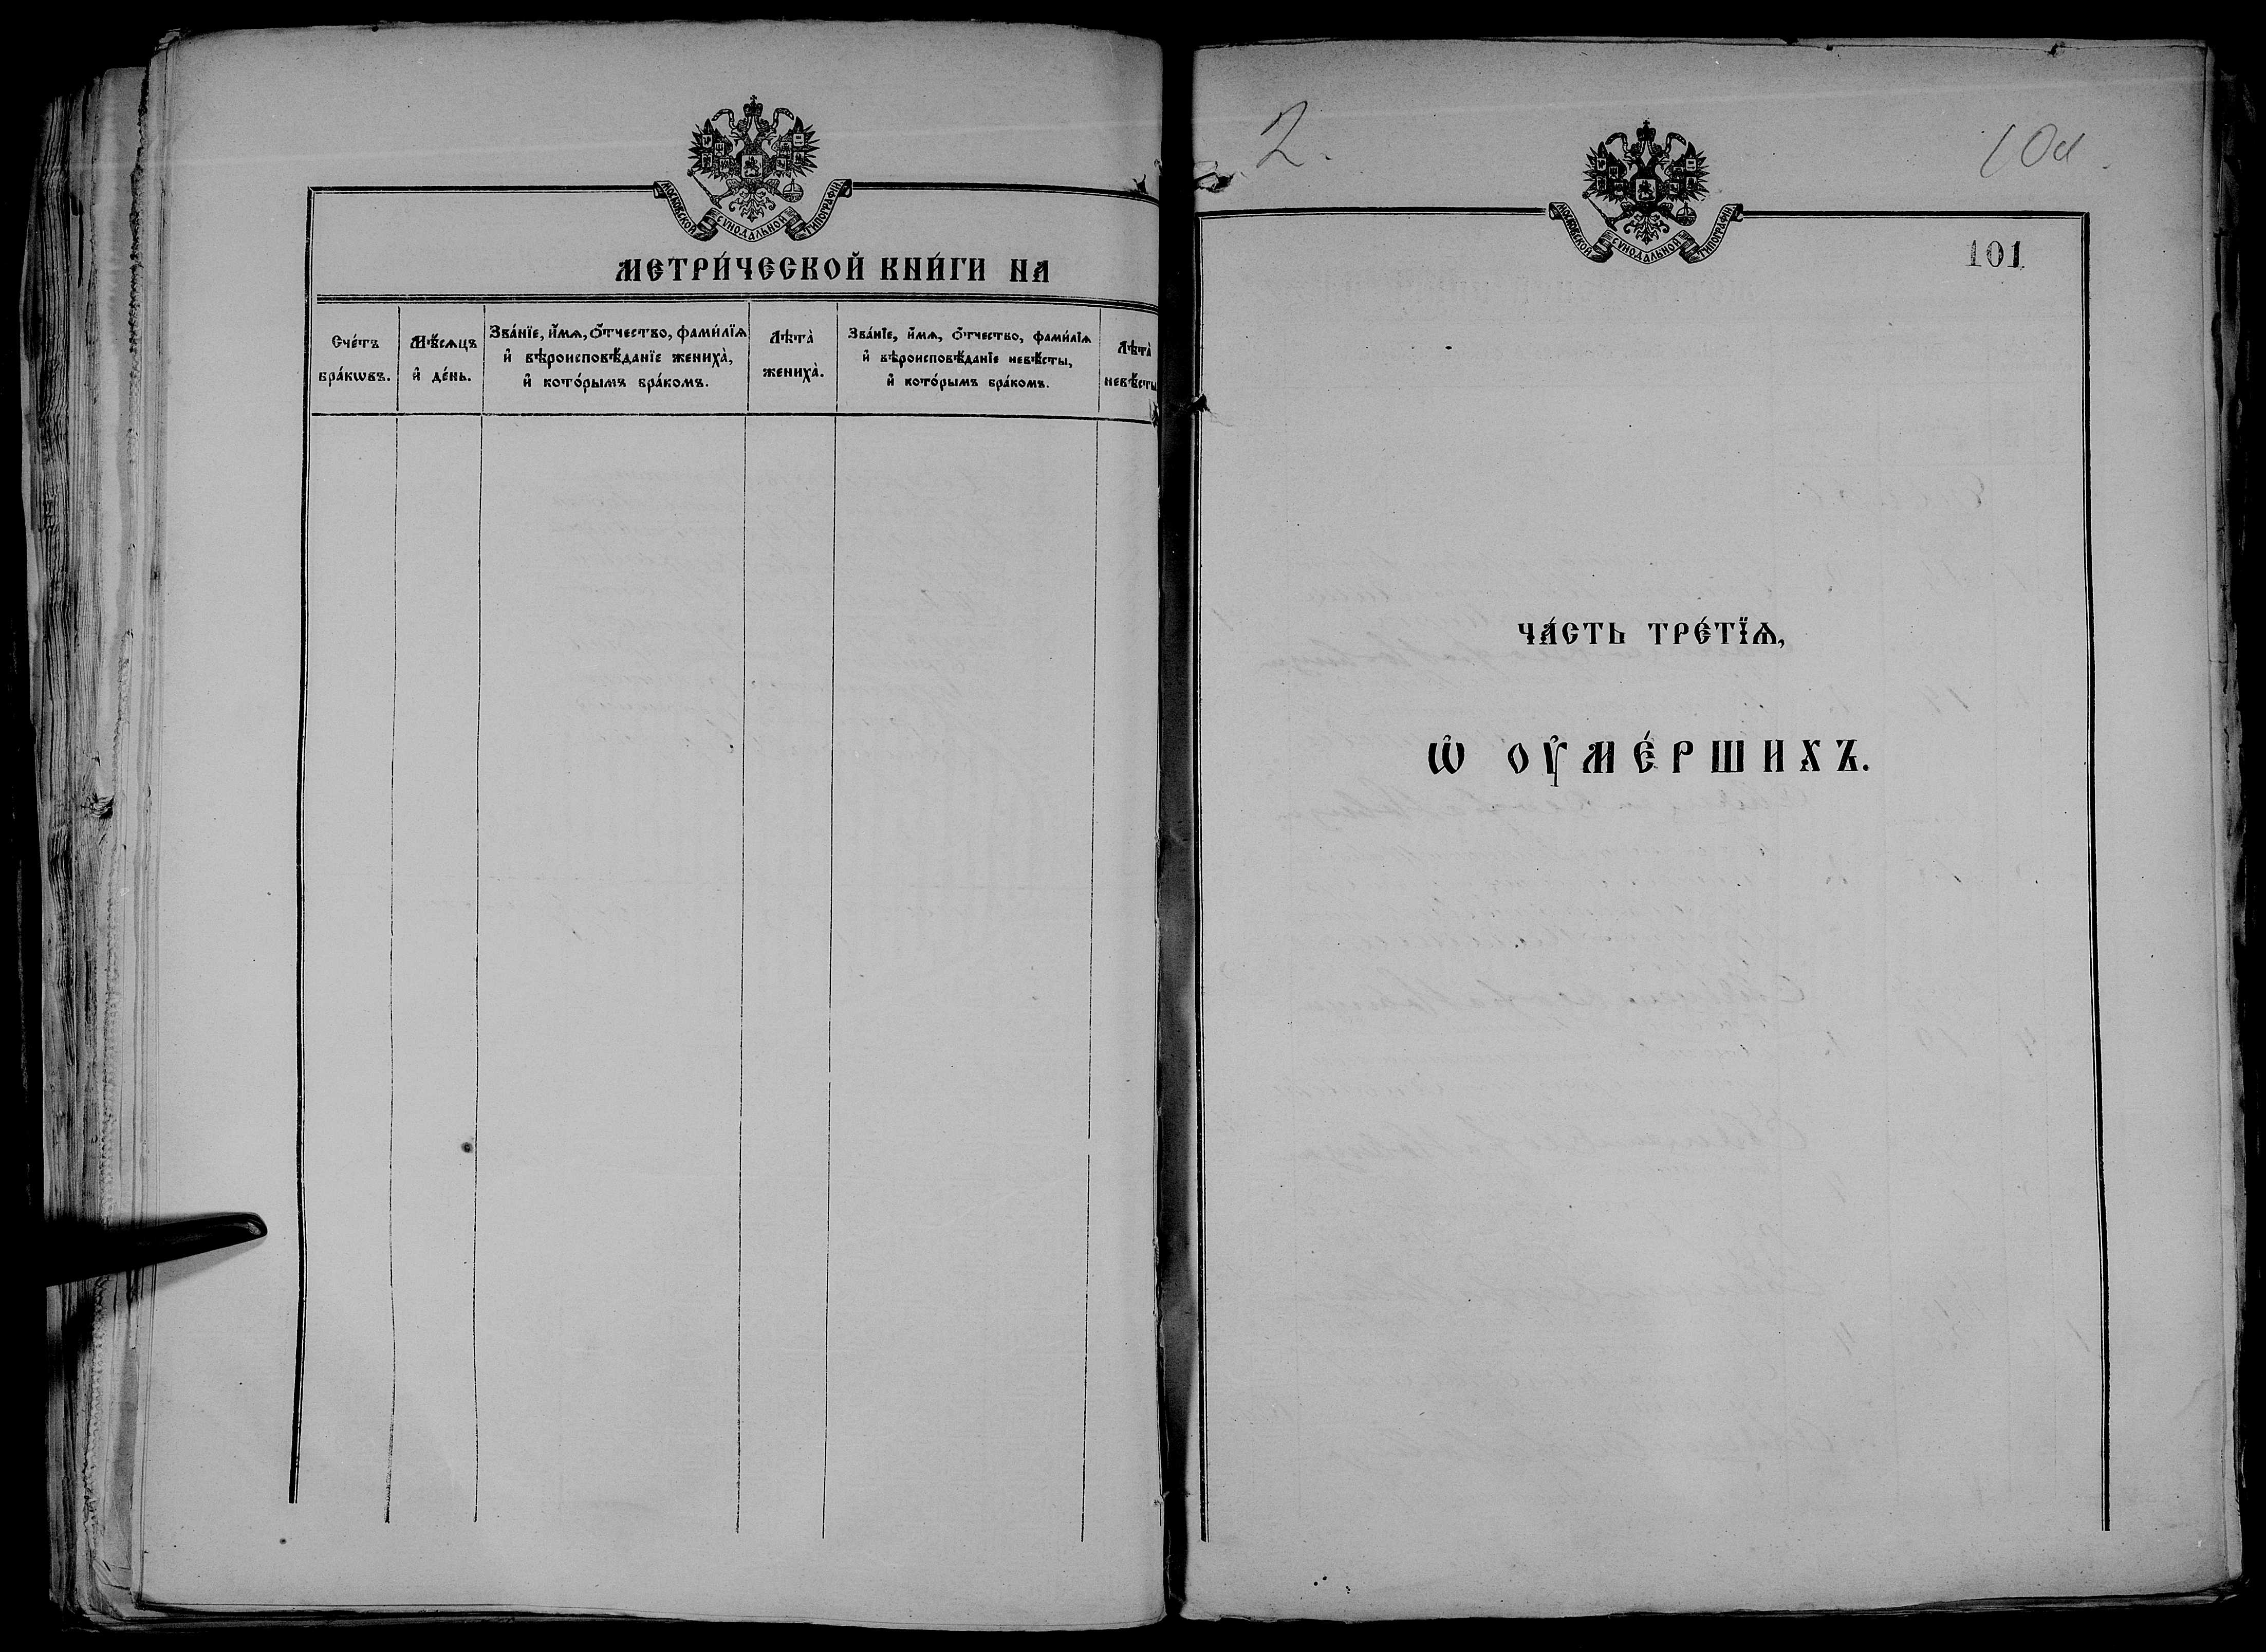 МОСКОВСКОЙ СѴНОДАЛЬНОЙ ТИПОГРАФІИ
МЕТРИ́ЧЕСКОЙ КНИ́ГИ НА
Сче́тъ
бра́кωвъ.
Мѣ́сѧцъ
и҆ де́нь.
Зва́нїе, и҆́мѧ, ѻ҆́тчество, фами́лїѧ
и҆ вѣроисповѣ́данїе жениха̀,
и҆ кото́рымъ бра́комъ.
Лѣта̀
жениха̀.
Зва́нїе, и҆́мѧ, ѻ҆́тчество, фами́лїѧ
и҆ вѣроисповѣ́данїе невѣ́сты,
и҆ кото́рымъ бра́комъ.
Лѣта̀
невѣ́сты
2.
МОСКОВСКОЙ СѴНОДАЛЬНОЙ ТИПОГРАФІИ
101
ЧА́СТЬ ТРЕ́ТЇѦ,
Ѡ҆ ОУ҆МЕ́РШИХЪ.